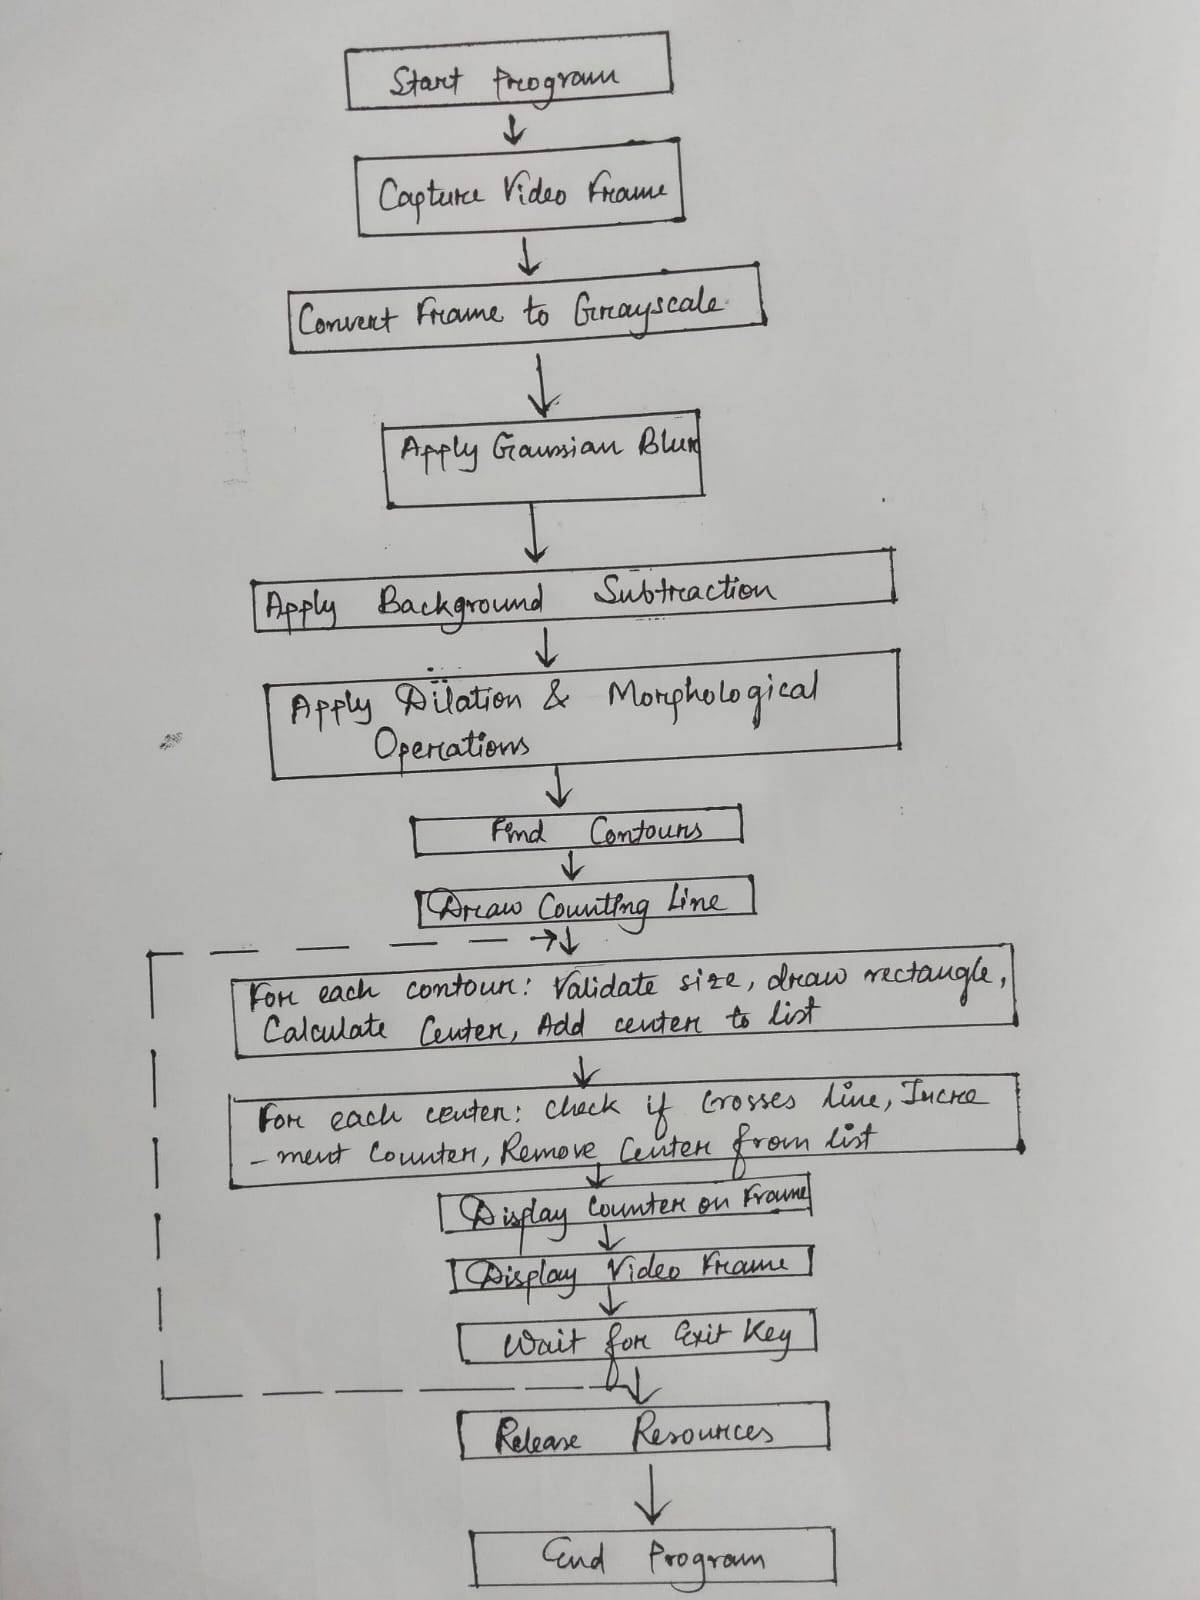 Start Program
Capture Video Frame
Convert Frame to Grayscale
Apply Gaussian Blur
Apply Background Subtraction
Apply Dilation & Morphological
Operations
Find Contours
Draw Counting Line
For each contour: Validate size, draw rectangle,
Calculate Center, Add center to list
For each center: Check if Crosses line, Incre
- ment Counter, Remove Center from list
Display Counter on Frame
Display Video Frame
Wait for Exit Key
Release Resources
End Program